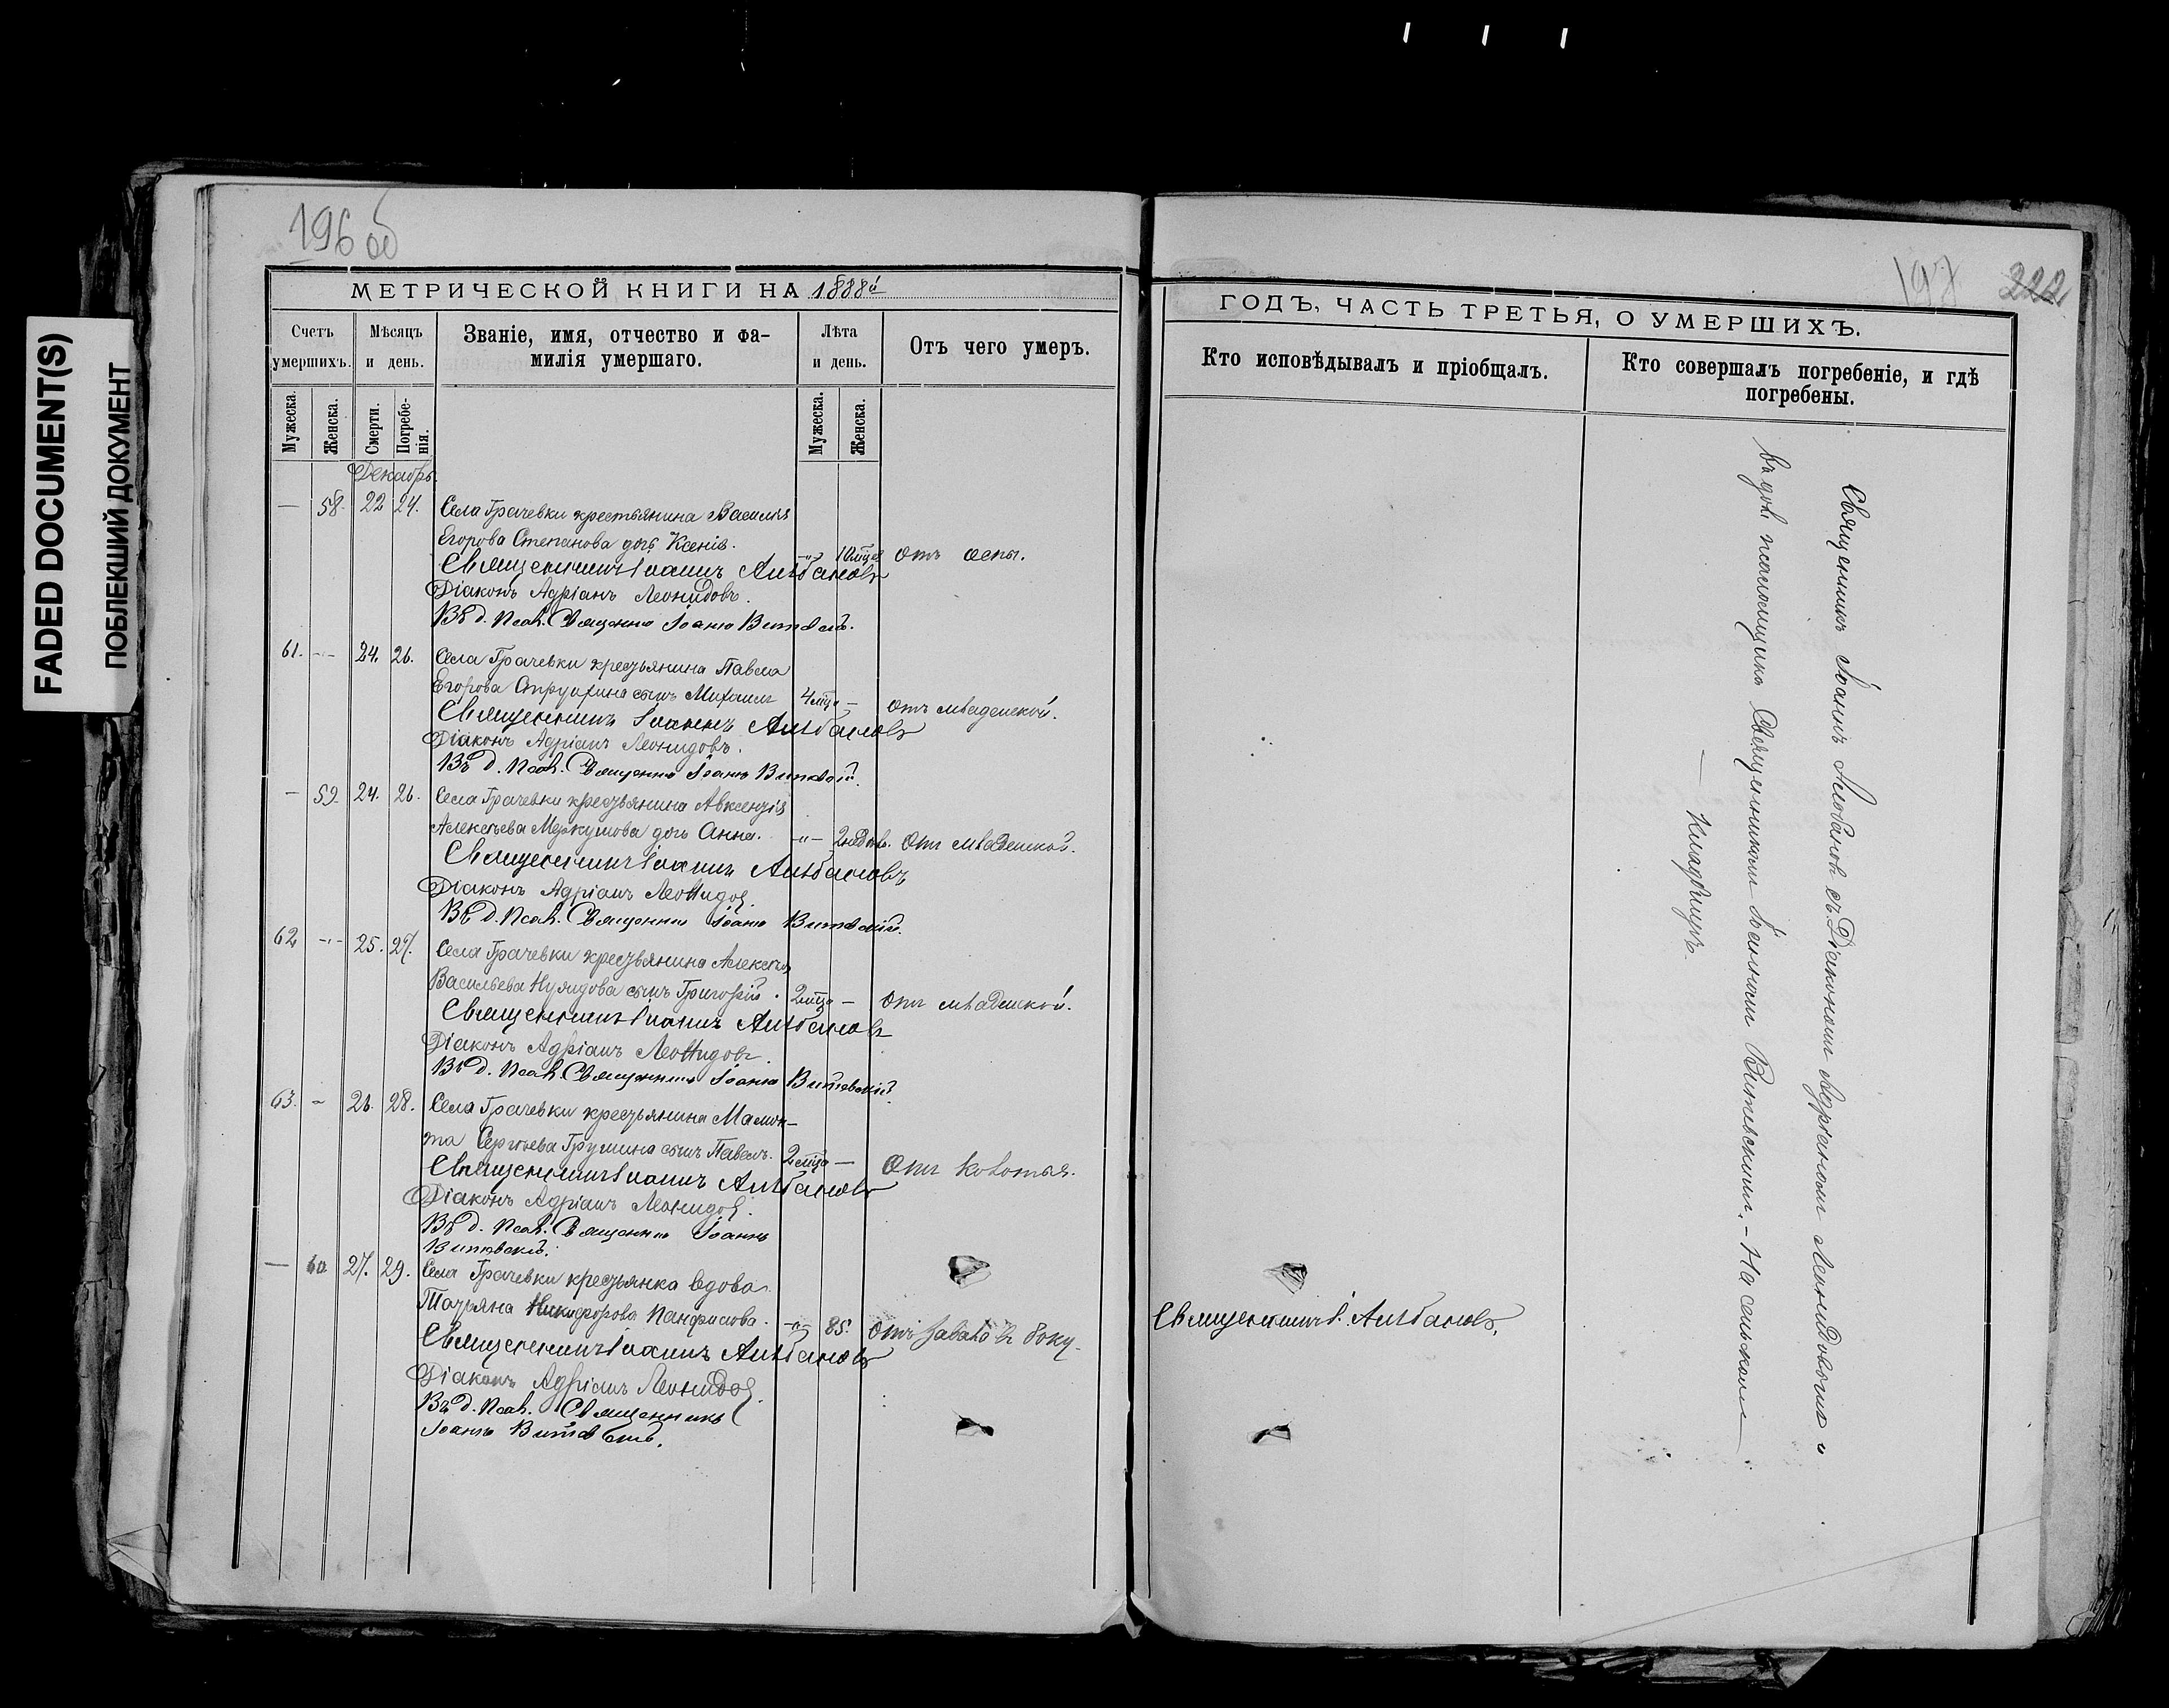 FADED DOCUMENT(S)
ПОБЛЕКШИЙ ДОКУМЕНТ
196 об
МЕТРИЧЕСКОЙ КНИГИ НА 1888й
Счетъ умершихъ.
Мѣсяцъ и день.
Званіе, имя, отчество и фа-
милія умершаго.
Лѣта и день.
Отъ чего умеръ.
Мужеска.
Женска.
Смерти.
Погребе-
нія.
Мужеска.
Женска.
Декабрь.
— 58. 22 24. Села Грачевки крестьянина Василія
Егорова Степанова дочь Ксенія. —"— 10 мцев отъ оспы.
Священникъ Іоаннъ Албановъ
Діаконъ Адріанъ Леонидовъ.
Въ д. Псал. Священникъ Іоаннъ Витевскій.
61. —"— 24. 26. Села Грачевки крестьянина Павла
Егорова сынъ Михаилъ 4 мца — отъ младенской.
Священникъ Іоаннъ Албановъ
Діаконъ Адріанъ Леонидовъ.
Въ д. Псал. Священникъ Іоаннъ Витевскій.
— 59 24. 26. Села Грачевки крестьянина Авксентія
Алексѣева Меркулова дочь Анна. —"— 2 недѣль. Отъ младенской.
Священникъ Іоаннъ Албановъ
Діаконъ Адріанъ Леонидов.
Въ д. Псал. Священникъ Іоаннъ Витевскій.
62 —"— 25. 27. Села Грачевки крестьянина Алексѣя
Васильева сынъ Григорій. 2 мца — Отъ младенской.
Священникъ Іоаннъ Албановъ
Діаконъ Адріанъ Леонидовъ.
Въ д. Псал. Священникъ Іоаннъ Витевскій.
63. — 26. 28. Села Грачевки крестьянина Мамон-
та Сергѣева Грушина сынъ Павелъ. 2 мца — Отъ колотья.
Священникъ Іоаннъ Албановъ
Діаконъ Адріанъ Леонидов.
Въ д. Псал. Священникъ Іоаннъ
Витевскій.
— 60 27. 29. Села Грачевки крестьянка вдова
Татьяна Никифорова Панфилова. —"— 85. Отъ завала въ боку.
Священникъ Іоаннъ Албановъ
Діаконъ Адріанъ Леонидов.
Въ д. Псал. Священникъ
Іоаннъ Витевскій.
197 222
ГОДЪ, ЧАСТЬ ТРЕТЬЯ, О УМЕРШИХЪ.
Кто исповѣдывалъ и пріобщалъ.
Кто совершалъ погребеніе, и гдѣ
погребены.
Священникъ І. Албановъ.
Священникъ Іоаннъ Албановъ съ Діакономъ Адріаномъ Леонидовымъ и
въ долж. псаломщика Священникомъ Іоанномъ Витевскимъ. — На сельскомъ
— Кладбищѣ.